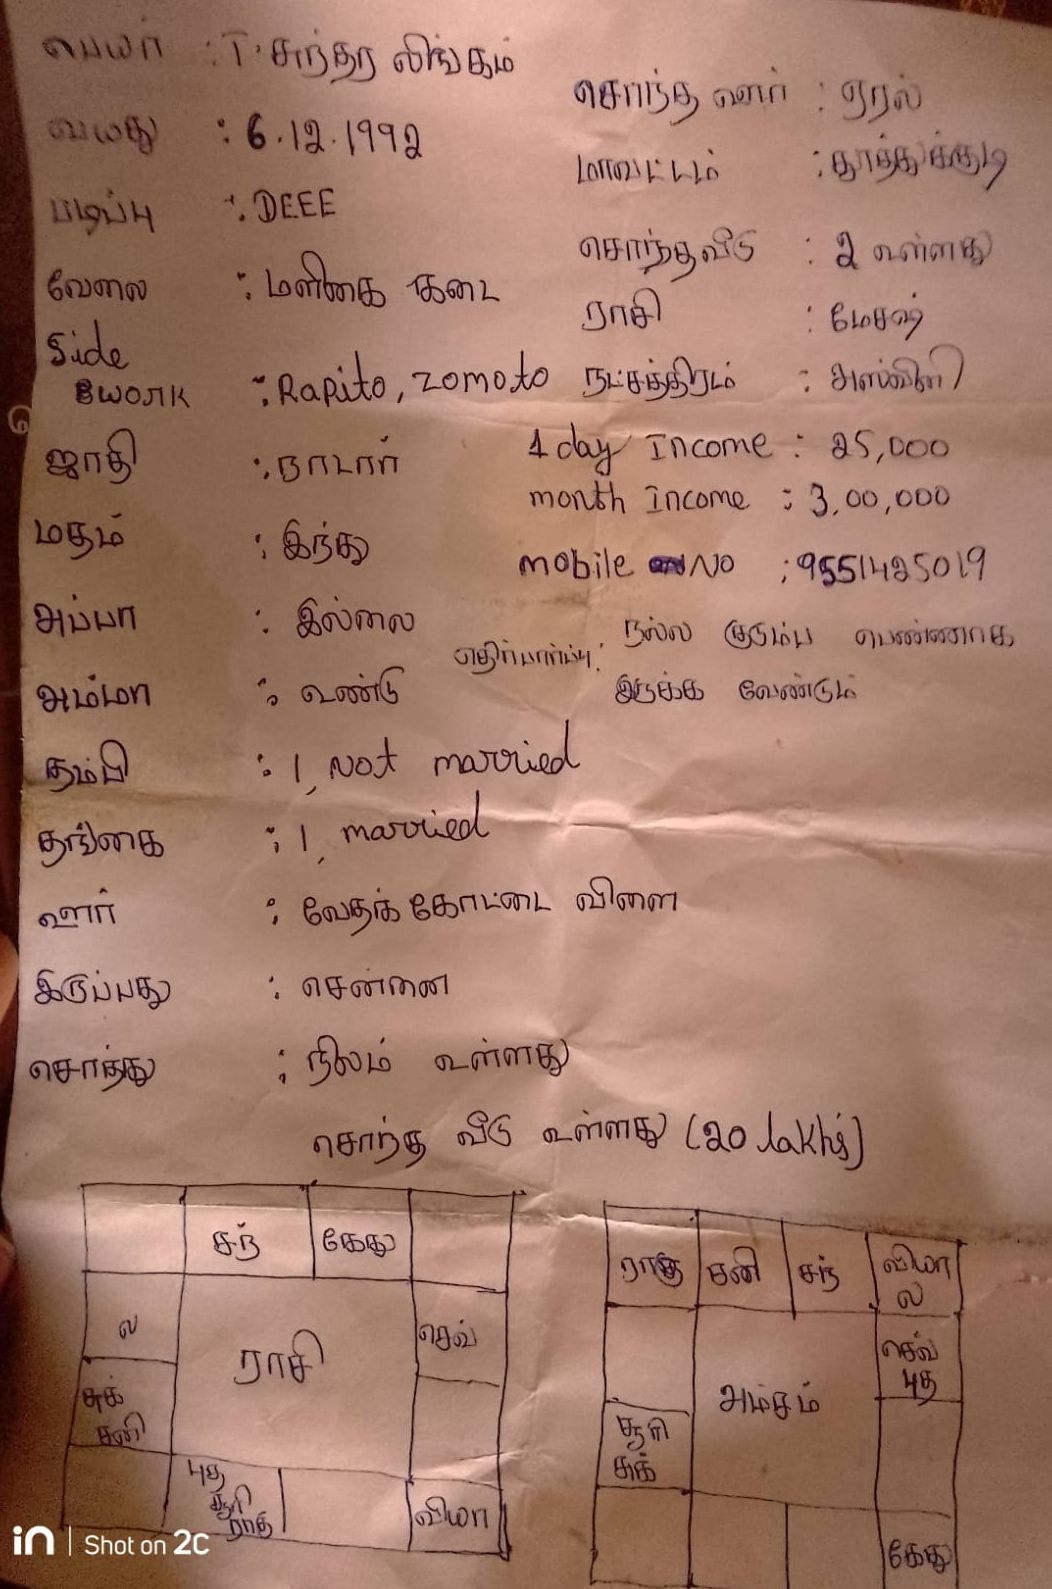 பெயர் : T. சுந்தர லிங்கம்
வயது : 6.12.1992
படிப்பு : DEEE
வேலை : மளிகை கடை
Side
work : Rapito, zomoto
ஜாதி : நாடார்
மதம் : இந்து
அப்பா : இல்லை
அம்மா : உண்டு
தம்பி : 1, Not married
தங்கை : 1, married
ஊர் : வேதக் கோட்டை விளை
இருப்பது : சென்னை
சொத்து : நிலம் உள்ளது
சொந்த வீடு உள்ளது (20 lakhs)
சொந்த ஊர் : ஏரல்
மாவட்டம் : தூத்துக்குடி
சொந்தவீடு : 2 உள்ளது
ராசி : மேசஷ்
நட்சத்திரம் : அஸ்வினி
1 day Income : 25,000
month Income : 3,00,000
mobile No : 9551425019
எதிர்பார்ப்பு : நல்ல குடும்ப பெண்ணாக
இருக்க வேண்டும்
சந் கேது
ல
ராசி
செவ்
சுக்
சனி
புத
சூரி
ராகு
வியா
ராகு சனி சந் வியா
ல
செவ்
புத
அம்சம்
சூரி
சுக்
கேது
in | Shot on 2C